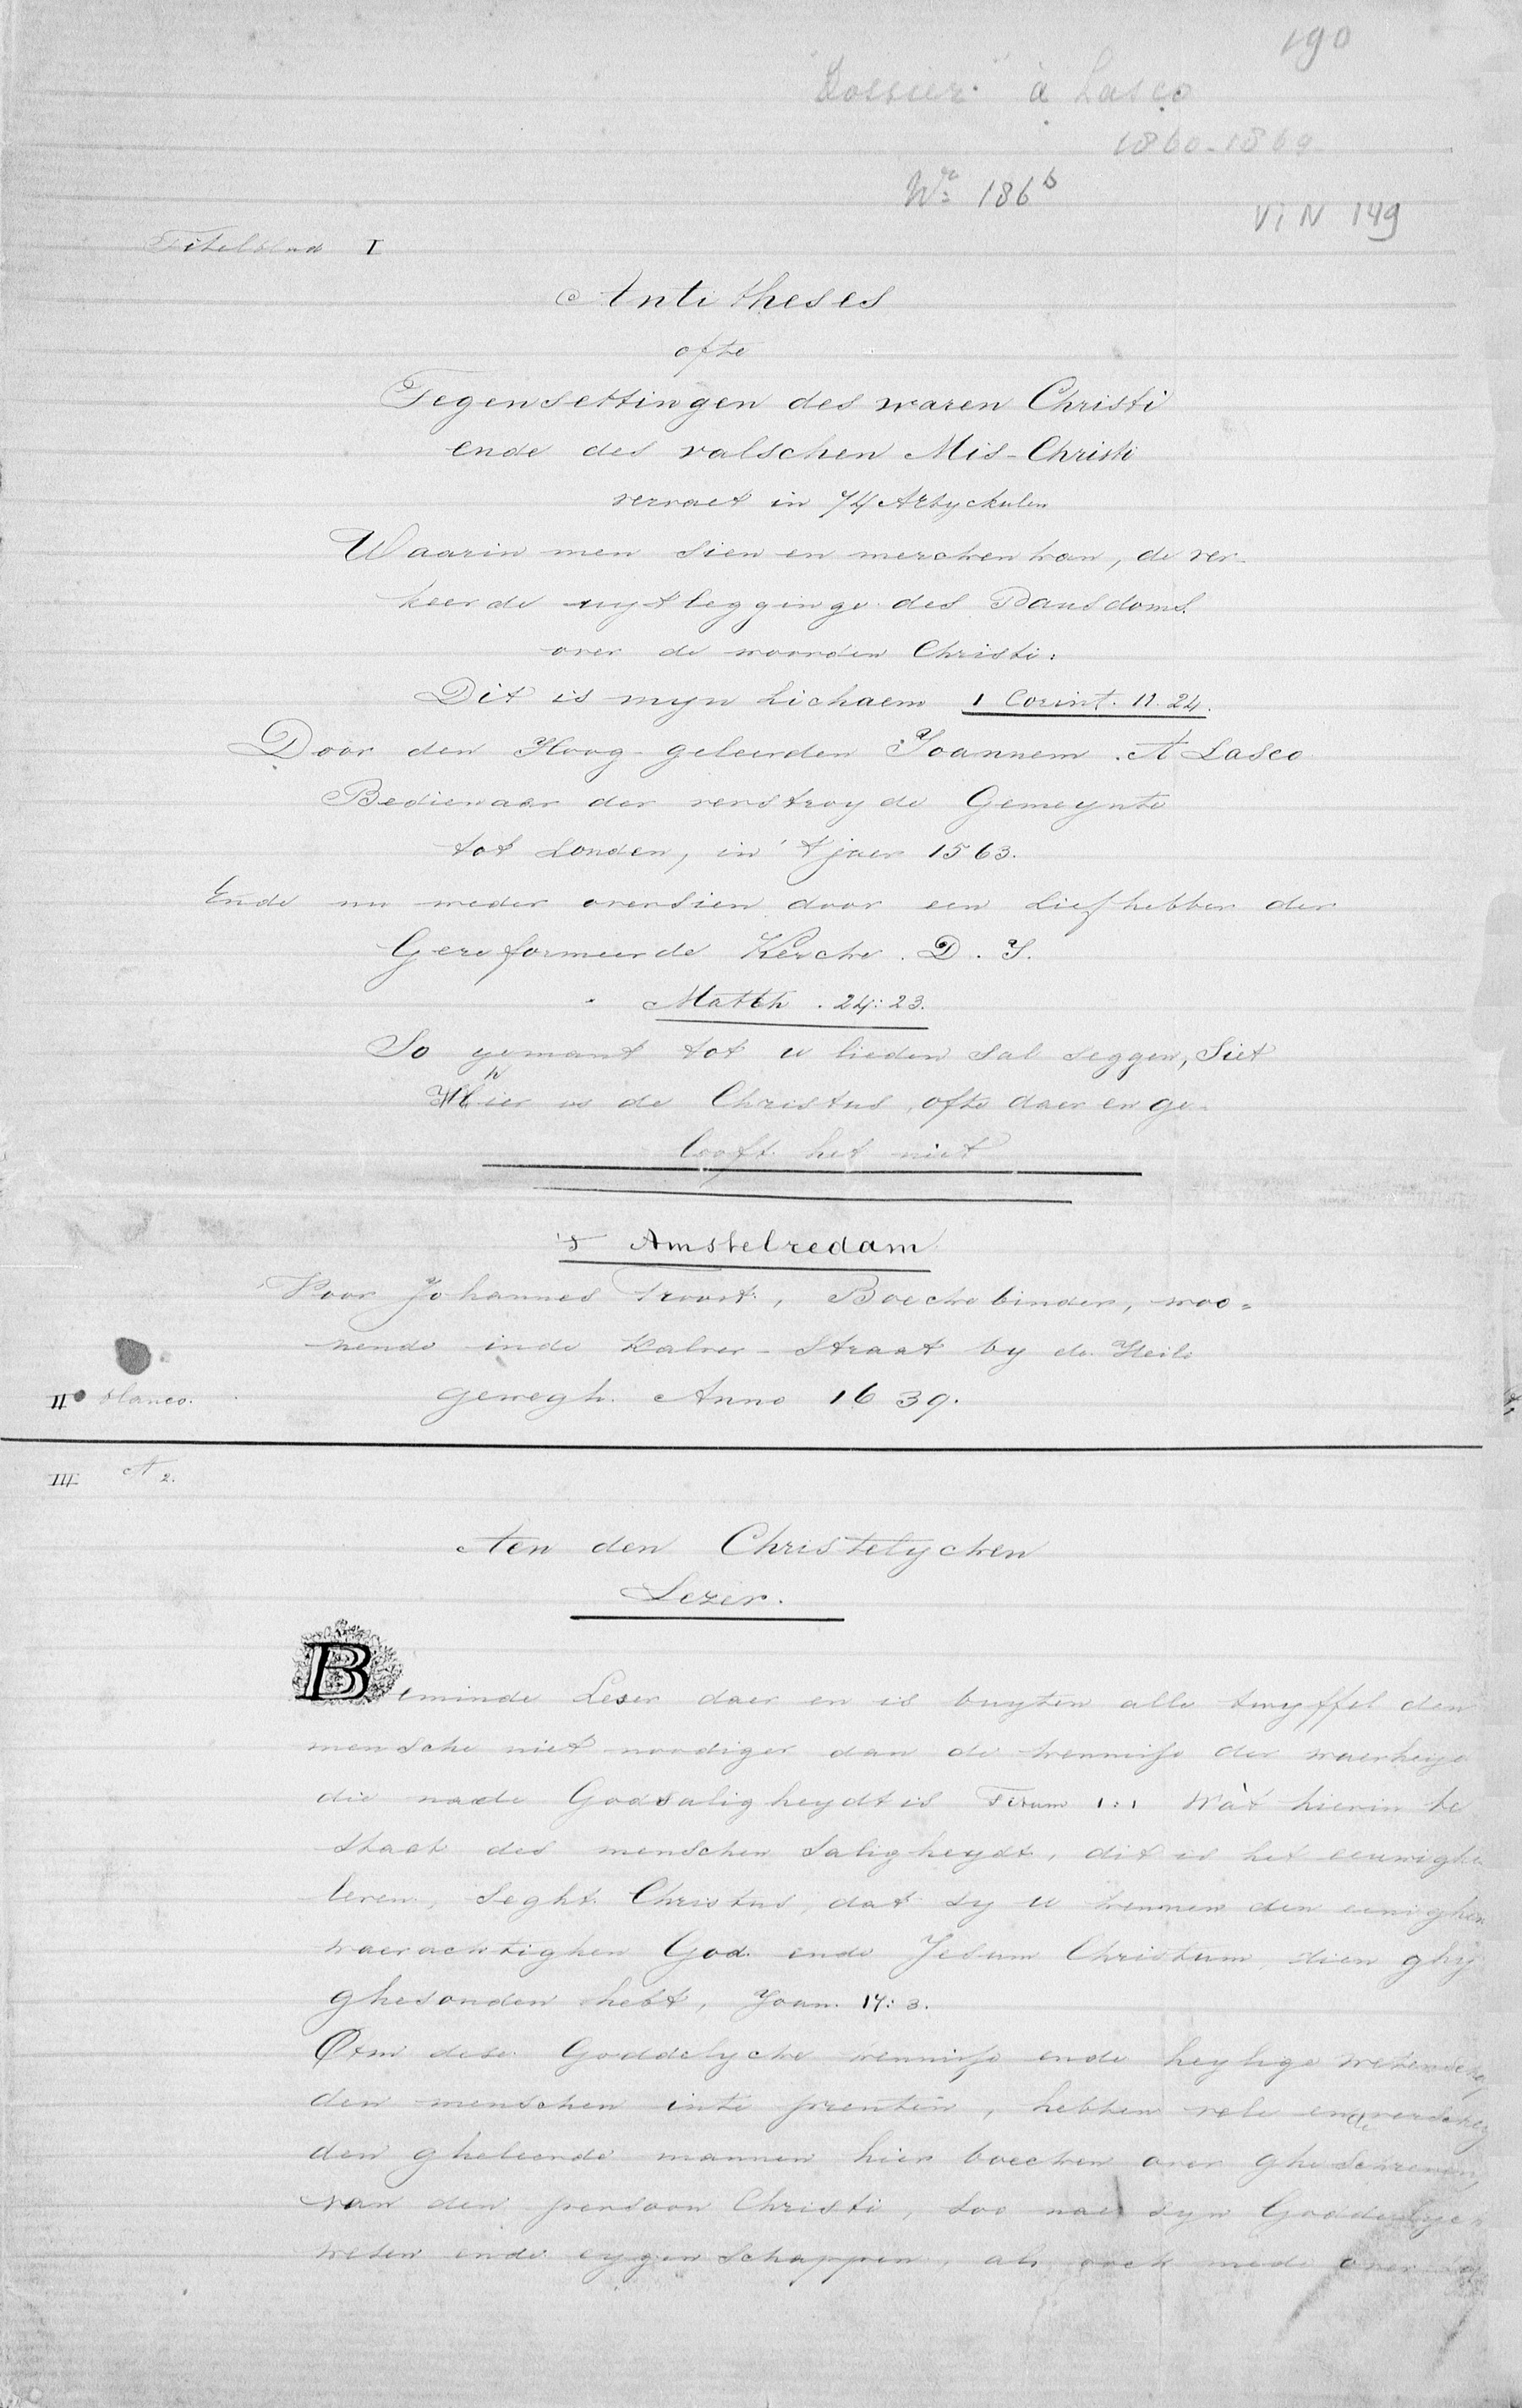 190
"Dossier" à Lasco
1860-1869
No 186b
VI N 149
Titelblad I
Antitheses
ofte
Tegensettingen des waren Christi
ende des valschen Mis-Christi
vervaet in 74 Artyckulen
Waarin men sien en mercken kan, de ver-
keerde uytlegginge des Pausdoms
over de woorden Christi:
Dit is myn Lichaem 1 Corint. 11.24.
Door den Hoog-geleerden Joannem A Lasco
Bedienaar der verstroyde Gemeynte
tot Londen, in 't jaer 1563.
Ende nu weder oversien door een Liefhebber der
Gereformeerde Kercke. D. J.
Matth. 24:23.
So yemant tot u lieden sal seggen, Siet
hier is de Christus, ofte daer en ge-
looft het niet
't Amstelredam
Voor Johannes Troost, Boeckebinder, woo=
nende inde Kalver-Straat by de Heili
gewegh. Anno 1639.
II blanco.
III A 2.
Aen den Christelycken
Lezer.
Beminde Leser daer en is buyten alle twyffel den
mensche niet noodiger dan de kennisse der waerheyt
die nade Godsaligheydt is 1:1 Wat hierin be
staet des menschen Saligheydt, dit is het eeuwighe
leven, Seght Christus, dat sy u kennen den eenighen
waerachtighen God ende Jesum Christum, dien ghy
ghesonden hebt, Joan. 17:3.
Om dese Goddelycke kennisse ende heylige wetensch
den menschen inte prenten, hebben vele ende verschey
den gheleerde mannen hier boecken over gheschreven,
van den persoon Christi, soo nae syn Goddelyc
wesen ende eygenschappen, als oock mede over